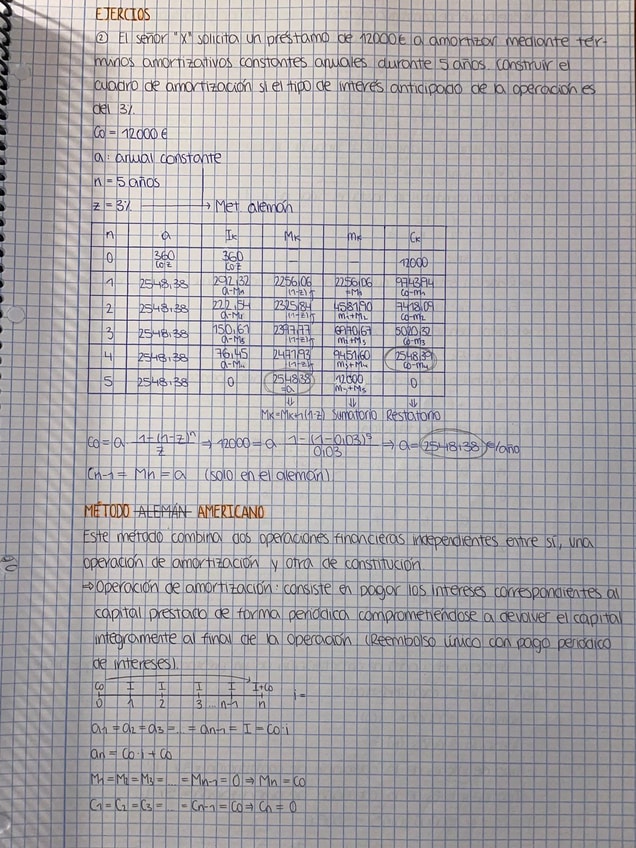 EJERCIOS
② El señor "X" solicita un préstamo de 12000€ a amortizar mediante tér-
minos amortizativos constantes anuales durante 5 años. Construir el
cuadro de amortización si el tipo de interés anticipado de la operación es
del 3%
Co = 12000 €
a: anual constante
n = 5 años
z = 3% → Met. alemán
n a Ik Mk mk Ck
0 360 Co·z 360 Co·z — — 12000
1 2548,38 292,32 a-M1 2256,06 (1-z) 2256,06 =M1 9743,94 Co-m1
2 2548,38 222,54 a-M2 2325,84 (1-z) 4581,90 m1+M2 7418,09 Co-m2
3 2548,38 150,61 a-M3 2397,77 (1-z) 6970,67 m2+M3 5020,32 Co-m3
4 2548,38 76,45 a-M4 2471,93 (1-z) 9451,60 m3+M4 2548,39 Co-m4
5 2548,38 0 2548,38 =a 12000 m4+M5 0
⇓ ⇓ ⇓
Mk=Mk+1(1-z) Sumatorio Restatorio
Co = a · 1-(1-z)ⁿ / z ⇒ 12000 = a 1-(1-0,03)⁵ / 0,03 ⇒ a = 2548,38 €/año
Cn-1 = Mn = a (solo en el alemán)
MÉTODO ALEMÁN AMERICANO
Este método combina dos operaciones financieras independientes entre sí, una
operación de amortización y otra de constitución.
⇒ Operación de amortización: consiste en pagar los intereses correspondientes al
capital prestado de forma periódica comprometiéndose a devolver el capital
íntegramente al final de la operación (Reembolso único con pago periódico
de intereses).
Co I I I I I+Co
0 1 2 3 ... n-1 n i=
a1 = a2 = a3 = ... = an-1 = I = Co·i
an = Co·i + Co
M1 = M2 = M3 = ... = Mn-1 = 0 ⇒ Mn = Co
C1 = C2 = C3 = ... = Cn-1 = Co ⇒ Cn = 0